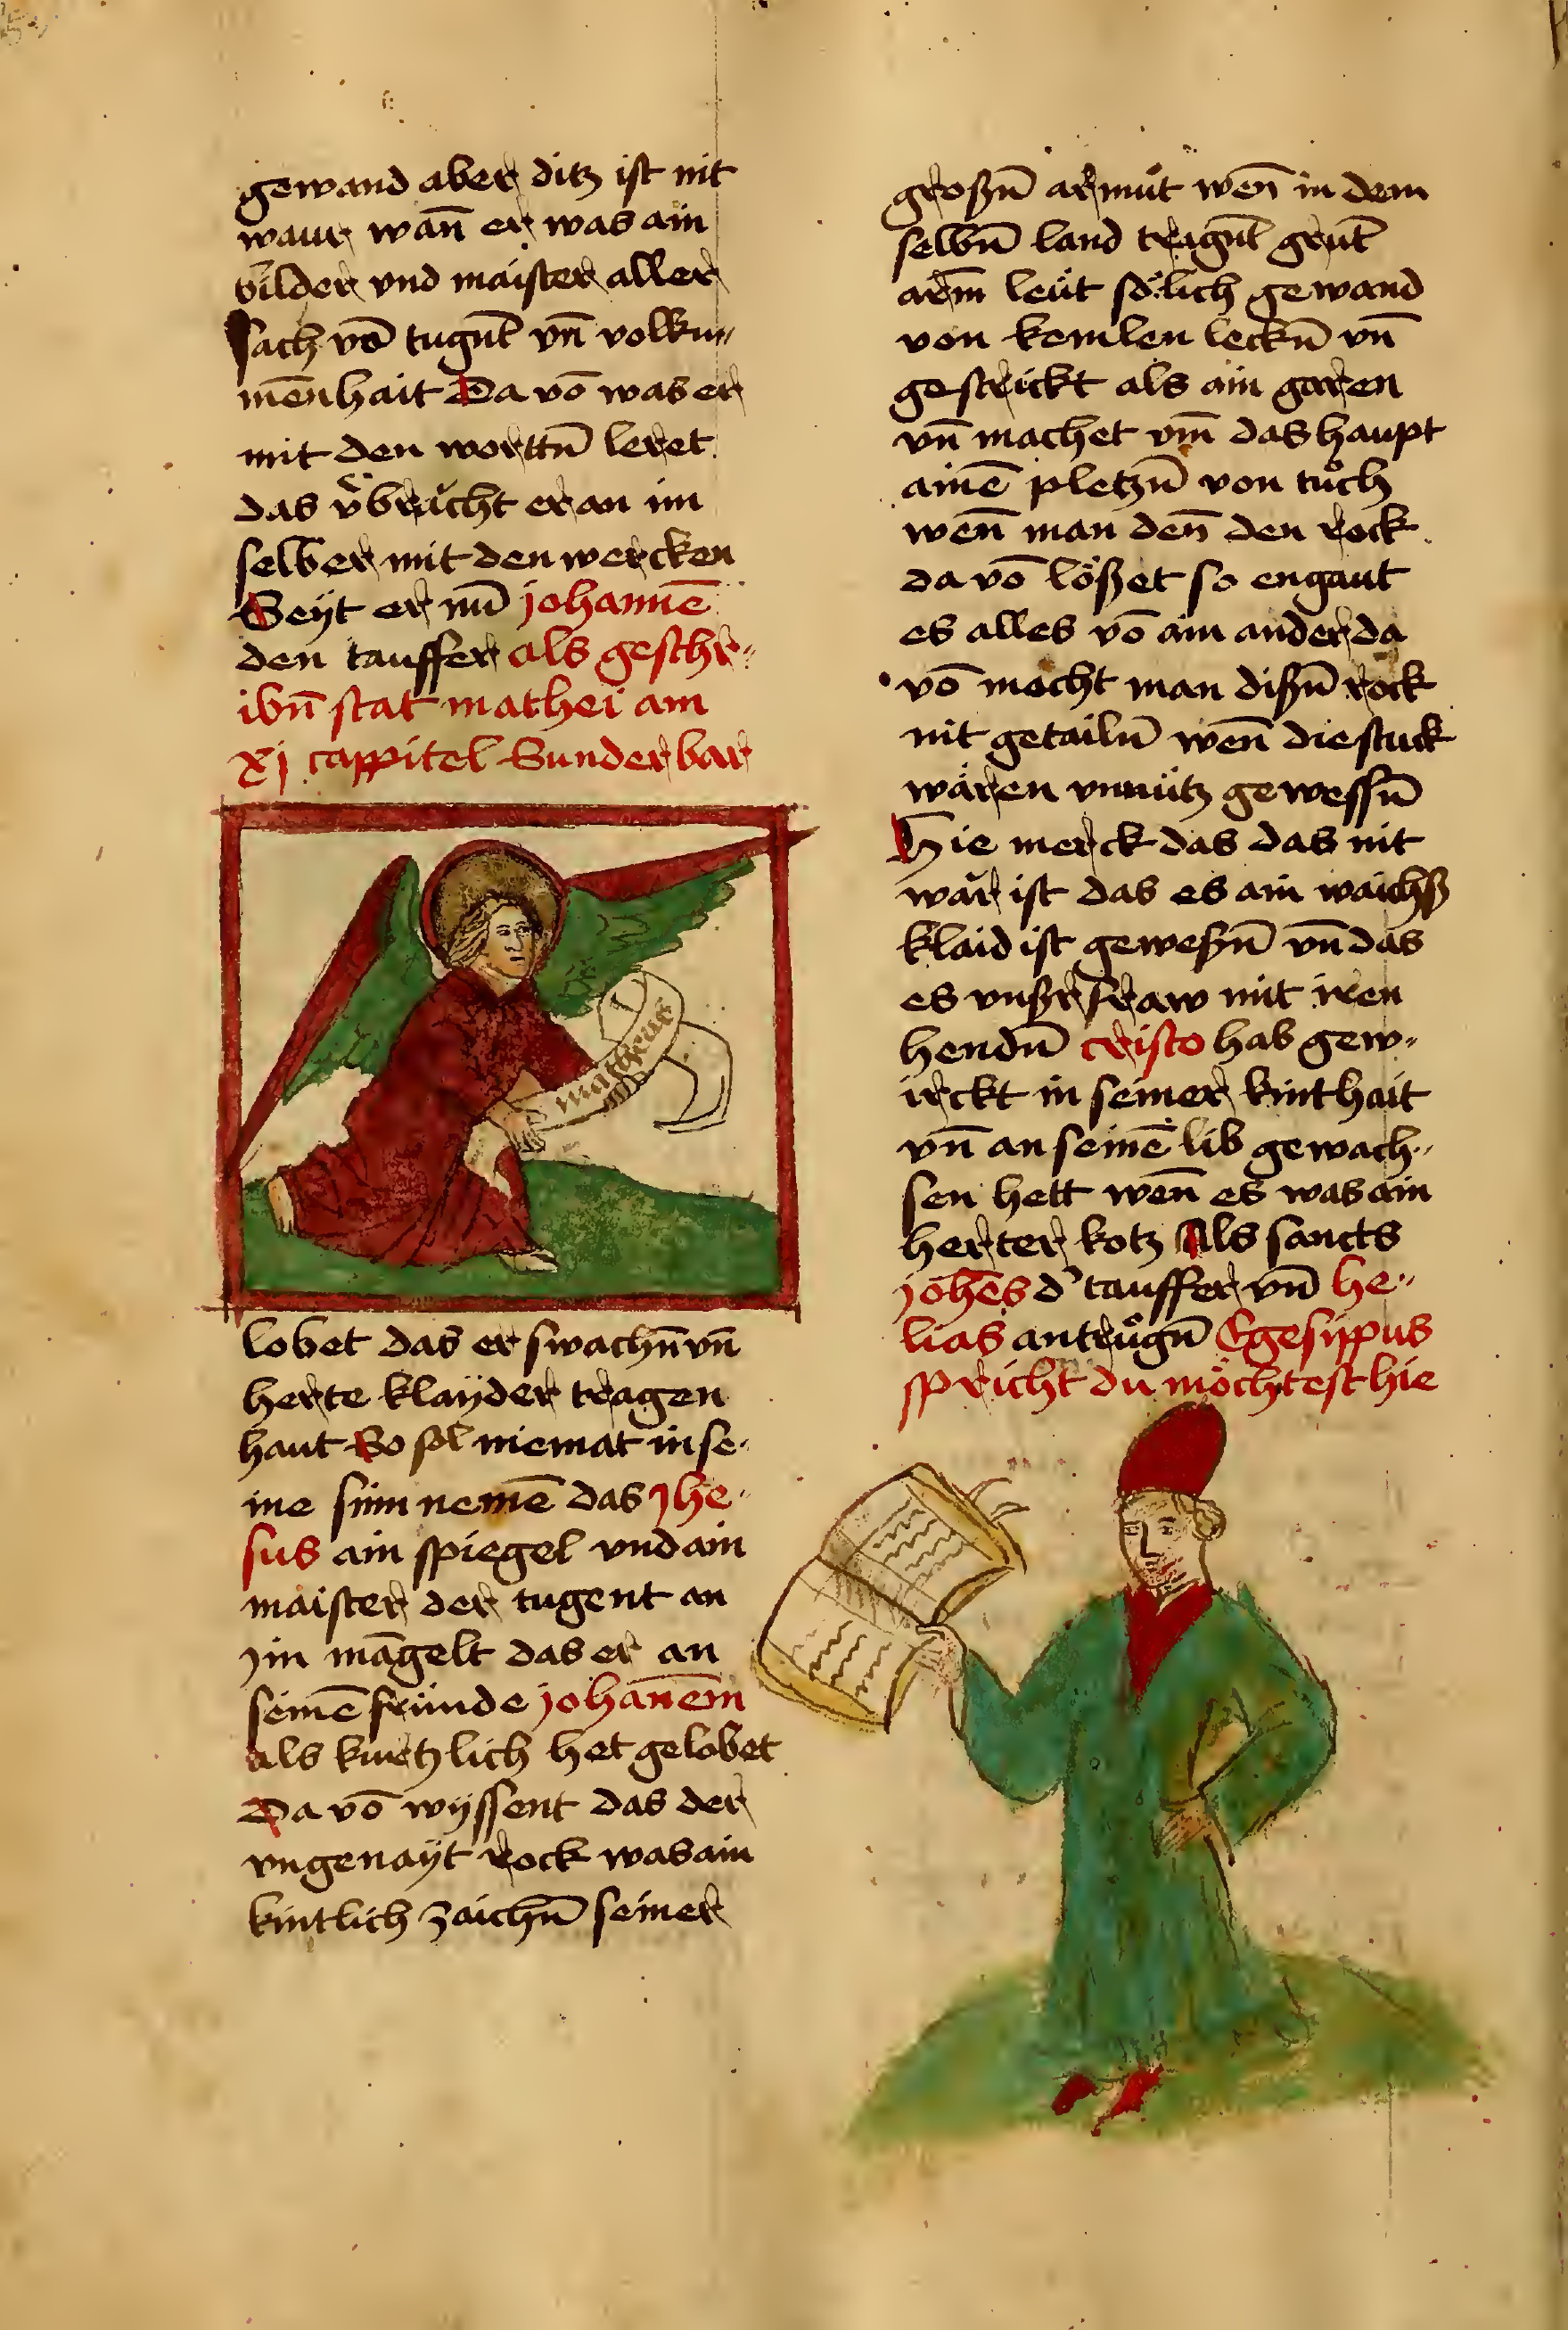 gewand aber ditz ist nit
waur wañ er was ain
bilder vnd maister aller
sach võ tugnt̄ vn̄ volku„
men̄hait Da võ was er
mit den worttn̄ leret
das v̈brächt er an im
selber mit den wercken
Seÿt er nu̅ johanne̅
den tauffer als geschr„
ibn̄ stat mathei am
xj cappitel Sunderbar
matheus
lobet das er swachn̄ vn̄
herte klaÿder tragen
haut So sol niemat in se„
ine sinn neme̅ das Jhe„
sus ain spiegel vnd ain
maister der tugent an
jm ma̅gelt das er an
seine̅ fründe johane̅m
als kurtzlich het gelobet
Da võ wyssent das der
vngenaÿt rock was ain
kintlich zaichn̄ seiner
großn̄ armuͦt wen̄ in dem
selbn̄ land tragnt̄ grnt̄
arm̄ leüt sölich gewand
von kemlen leckn̄ vn̄
gestrickt als ain garen
vn̄ machet vm̄ das haupt
aine̅ pletzn̄ von tuͦch
wen̄ man den̄ den rock
da võ lößet so engaut
es alles võ ain ander da
võ mocht man dißn̄ rock
nit getailn̄ wen̄ die stuck
wären vnnütz gewessn̄
Hie merck das das nit
wär ist das es ain waichß
klaid ist geweßn̄ vn̄ das
es vnßr fraw mit iren
hendn̄ cristo hab gew„
irckt in seiner kinthait
vn̄ an seine̅ lib gewach„
sen hett wen̄ es was ain
herter kotz Als sancts
johe̅s d' tauffer vn̄ he„
lias antruͦgn̄ Egesippus
spricht du möchtest hie